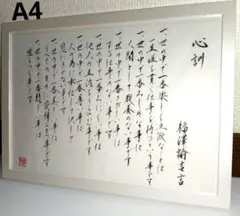 A4
心訓
福澤諭吉
一世の中で一番楽しく立派なことは
一生涯を貫く仕事を持つという事です
一世の中で一番みじめな事は
人間として教養のない事です
一世の中で一番さびしい事は
する仕事のない事です
一世の中で一番みにくい事は
他人の生活をうらやむ事です
一世の中で一番尊い事は
人の為に奉仕して決して
恩にきせない事です
一世の中で一番美しい事は